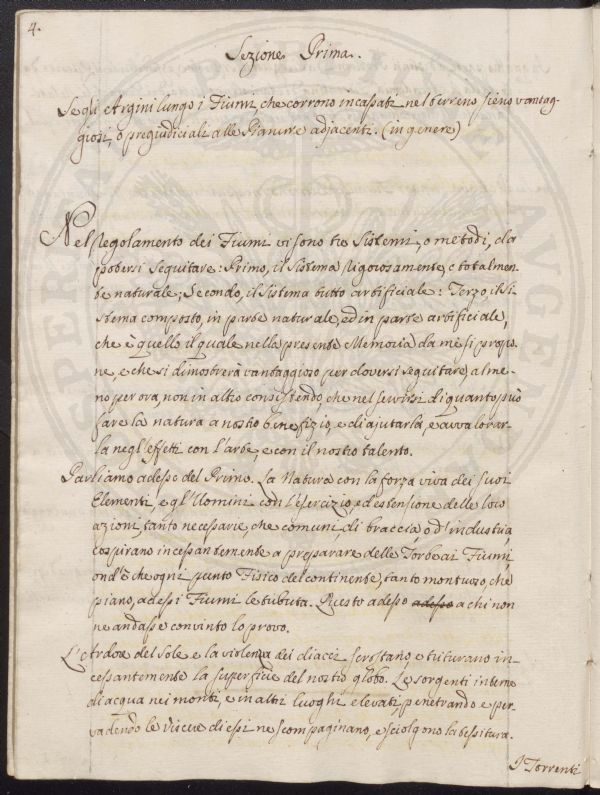 4.
Sezione Prima.
Se gli Argini lungo i Fiumi, che corrono incassati nel terreno sieno vantag-
giosi, o pregiudiciali alle Pianure adjacenti. (in genere)
Nel Regolamento dei Fiumi vi sono tre Sistemi, o metodi, da
potersi seguitare: Primo, il Sistema rigorosamente, e totalmen-
te naturale; Secondo, il Sistema tutto artificiale: Terzo, il Si-
stema composto, in parte naturale, ed in parte artificiale,
che è quello il quale nella presente Memoria da me si propo-
ne, e che si dimostrerà vantaggioso per doversi seguitare, alme-
no per ora, non in altro consistendo, che nel servirsi di quanto può
fare la natura a nostro benefizio, e di ajutarla, e avvalorar-
la negl'effetti con l'arte, e con il nostro talento.
Parliamo adesso del Primo. La Natura con la forza viva dei suoi
Elementi, e gl'Uomini con l'esercizio, ed estensione delle loro
azioni, tanto necessarie, che comuni, di braccia, o d'industria,
cospirano incessantemente a preparare delle Torbe ai Fiumi,
ond'è che ogni punto Fisico del continente, tanto montuoso, che
piano, ad essi Fiumi le tributa. Questo adesso adesso a chi non
ne andasse convinto lo provo.
L'Ardore del Sole e la violenza dei diacci scrostano, e triturano in-
cessantemente la superficie del nostro globo. Le sorgenti interne
di acqua nei monti, e in altri luoghi elevati, penetrando e per-
vadendo le viscere di essi ne scompaginano, e sciolgono la tessitura.
I Torrenti